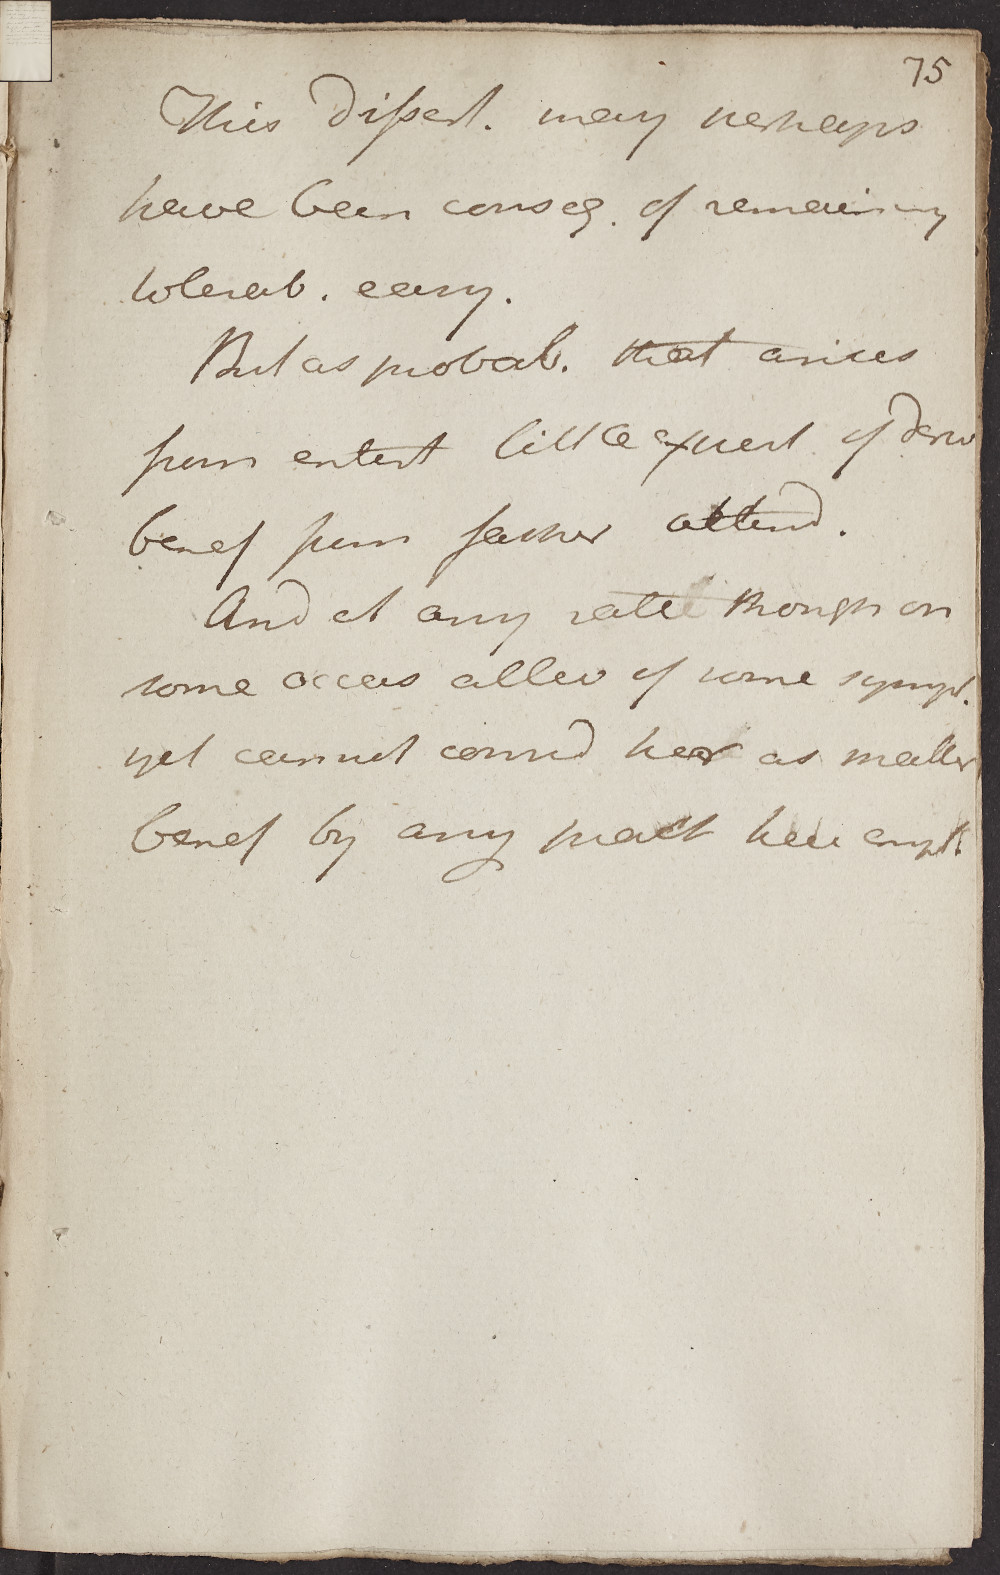 75
This dissert. may perhaps
have been conseq. of remaining
tolerab. easy.
But as probab. that arises
from entert little expect of deriv
benef from farther attend.
And at any rate though on
some occas allev of some sympt.
yet cannot consid her as mater
benef by any pract here empl.